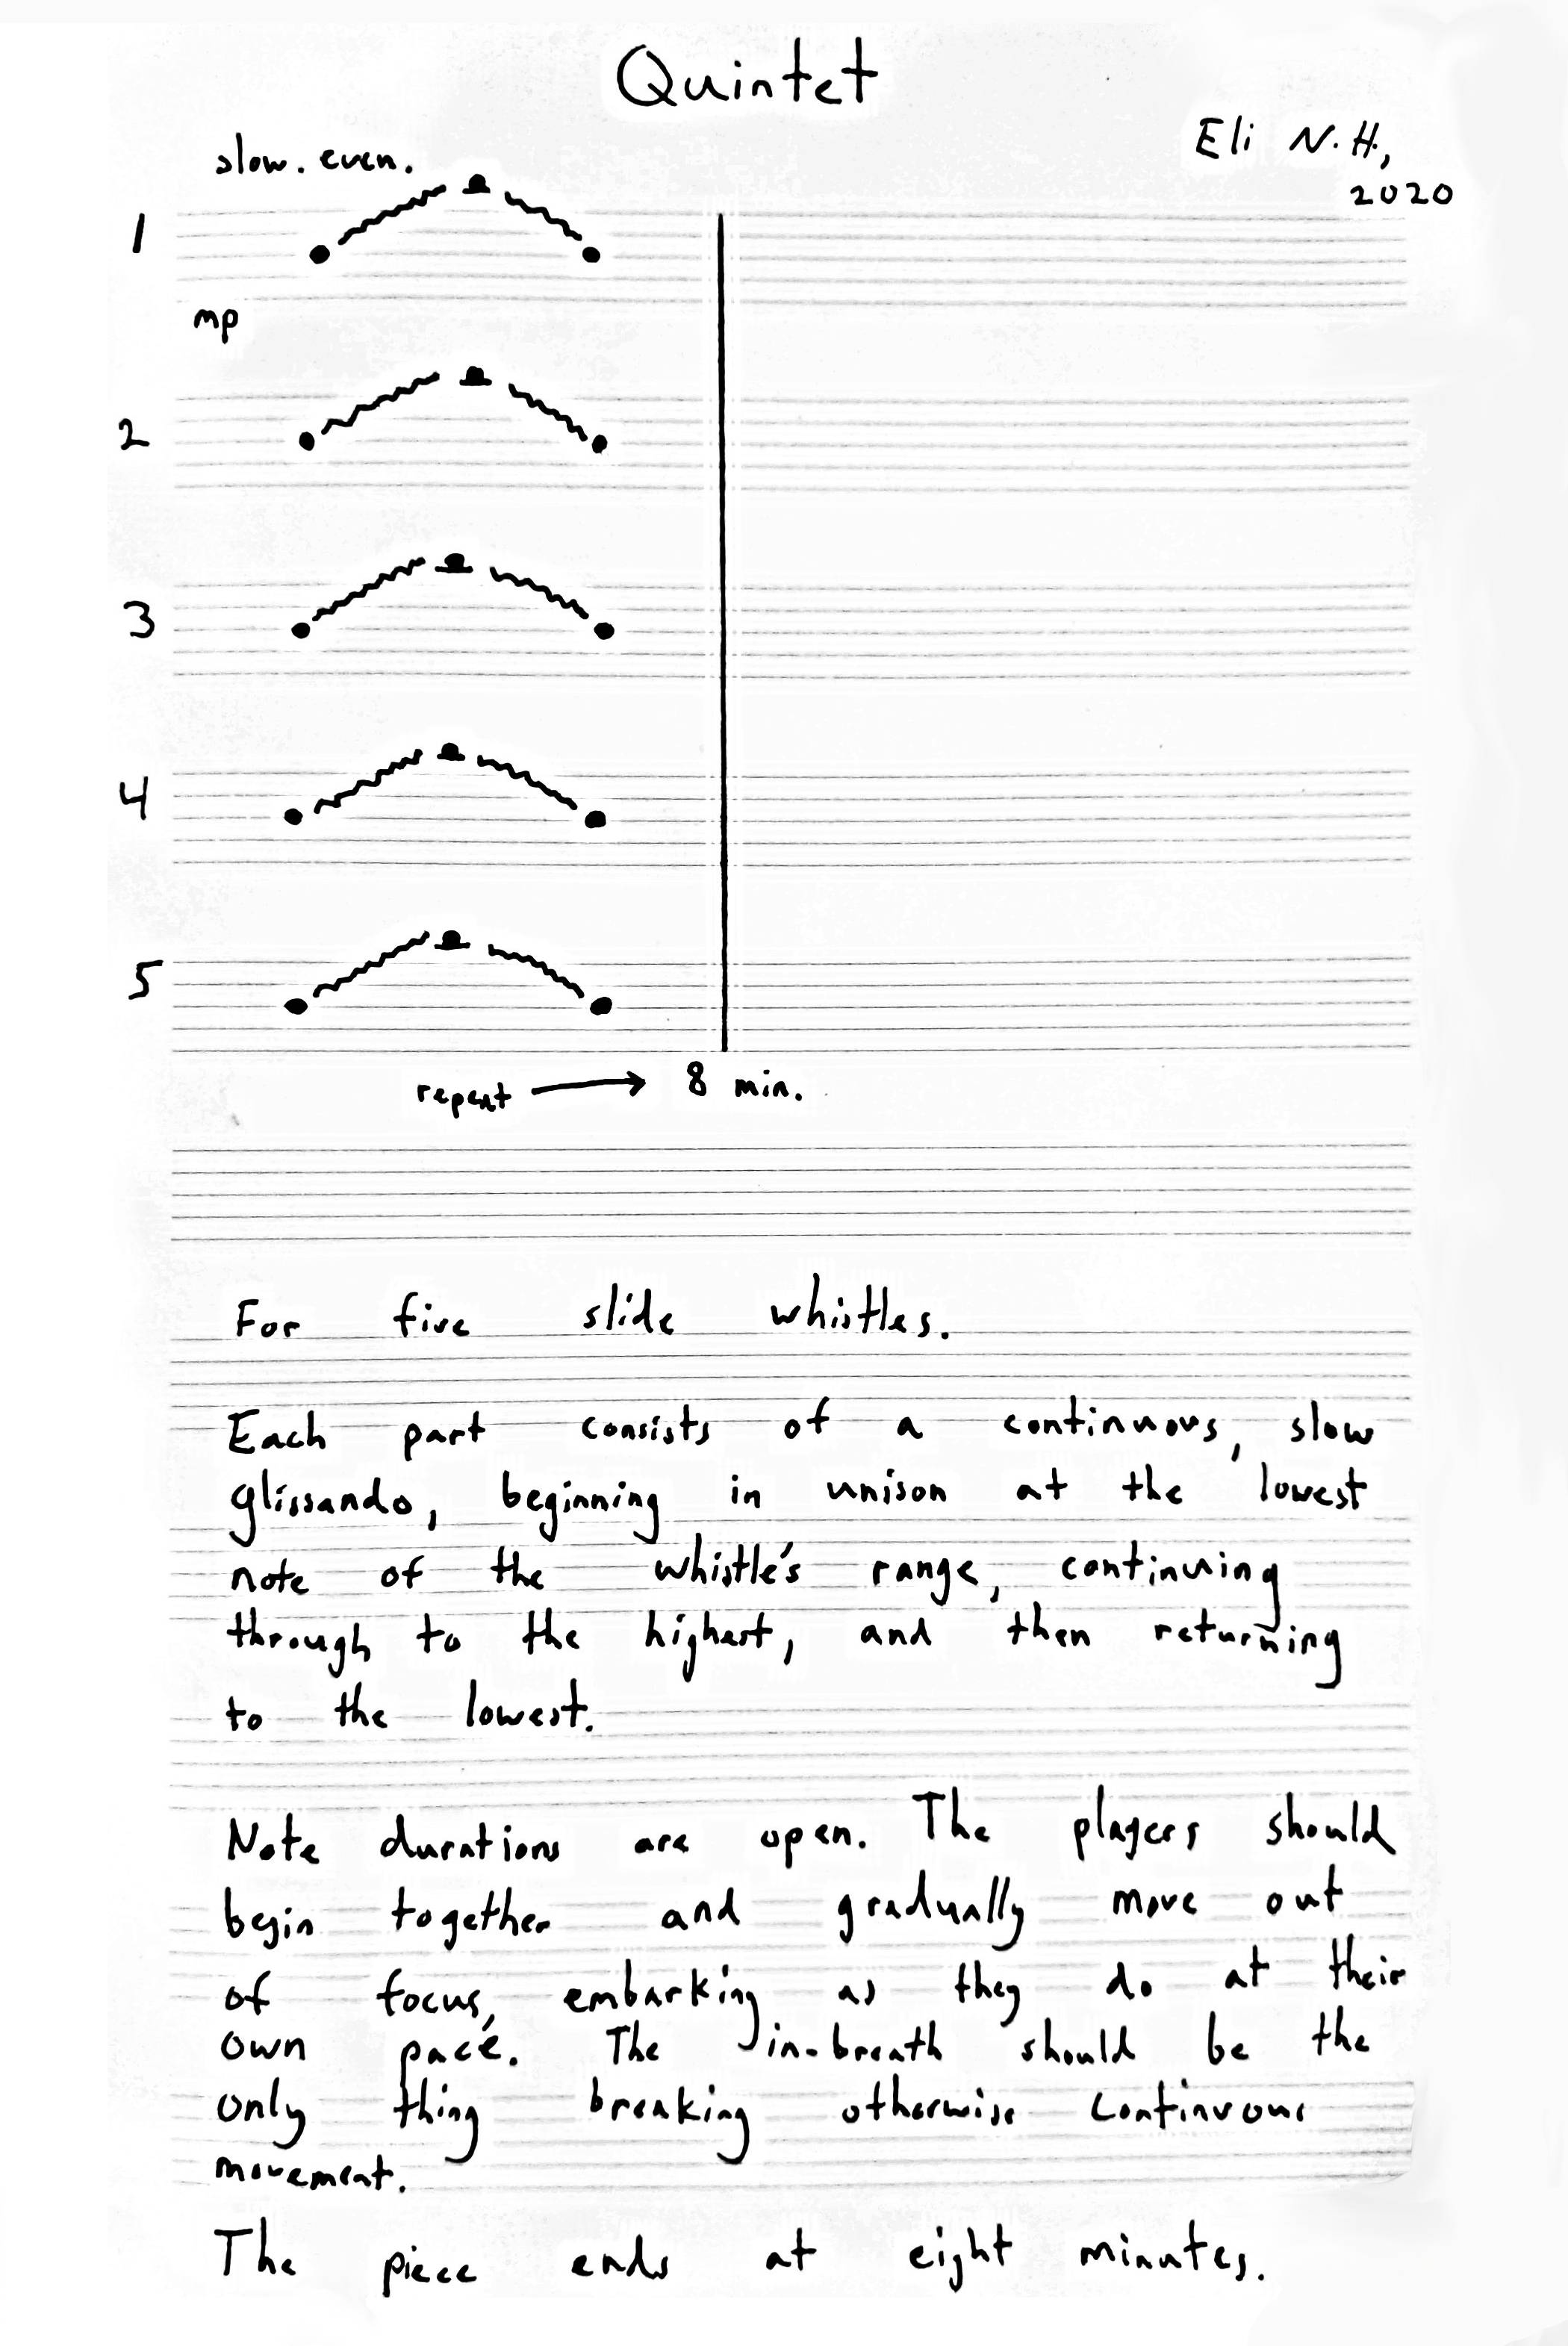 Quintet
Eli N.H.,
2020
slow. even.
1
mp
2
3
4
5
repeat → 8 min.
For five slide whistles.
Each part consists of a continuous, slow
glissando, beginning in unison at the lowest
note of the whistle's range, continuing
through to the highest, and then returning
to the lowest.
Note durations are open. The players should
begin together and gradually move out
of focus, embarking as they do at their
own pace. The in-breath should be the
only thing breaking otherwise continuous
movement.
The piece ends at eight minutes.